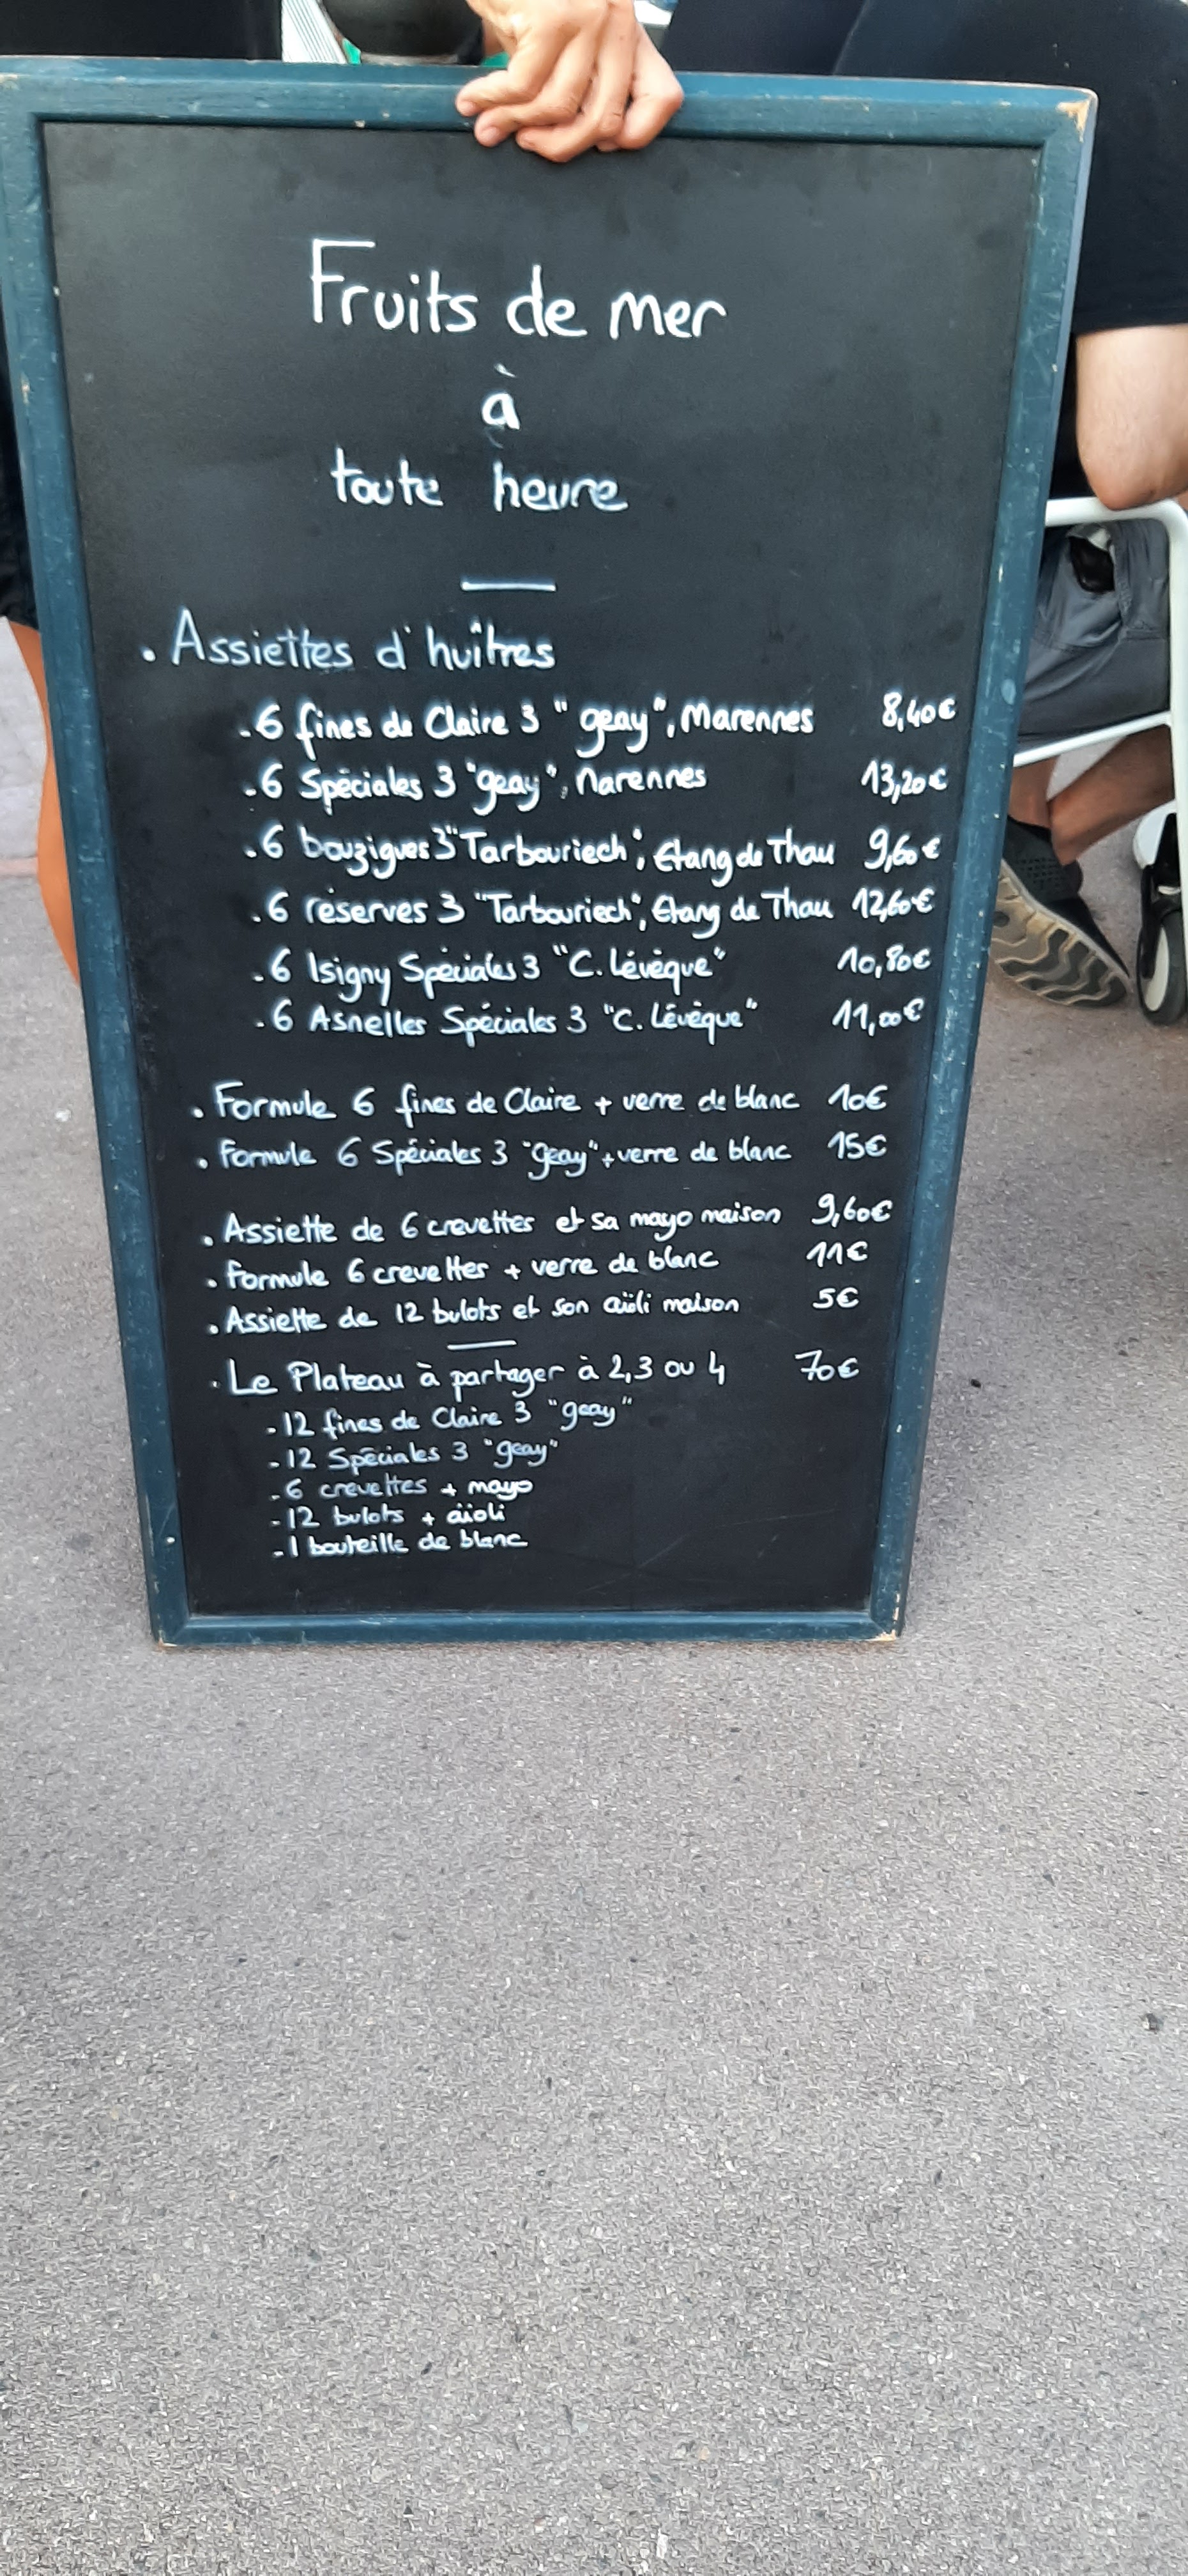 Fruits de mer
à
toute heure
. Assiettes d'huîtres
. 6 fines de Claire 3 "geay", Marennes 8,40€
. 6 Spéciales 3 "geay", Marennes 13,20€
. 6 bouzigues 3 "Tarbouriech", Etang de Thau 9,60€
. 6 réserves 3 "Tarbouriech", Etang de Thau 12,60€
. 6 Isigny Spéciales 3 "C. Lévèque" 10,80€
. 6 Asnelles Spéciales 3 "C. Lévèque" 11,00€
. Formule 6 fines de Claire + verre de blanc 10€
. Formule 6 Spéciales 3 "geay" + verre de blanc 15€
. Assiette de 6 crevettes et sa mayo maison 9,60€
. Formule 6 crevettes + verre de blanc 11€
. Assiette de 12 bulots et son aïoli maison 5€
. Le Plateau à partager à 2,3 ou 4 70€
- 12 fines de Claire 3 "geay"
- 12 Spéciales 3 "geay"
- 6 crevettes + mayo
- 12 bulots + aïoli
- 1 bouteille de blanc